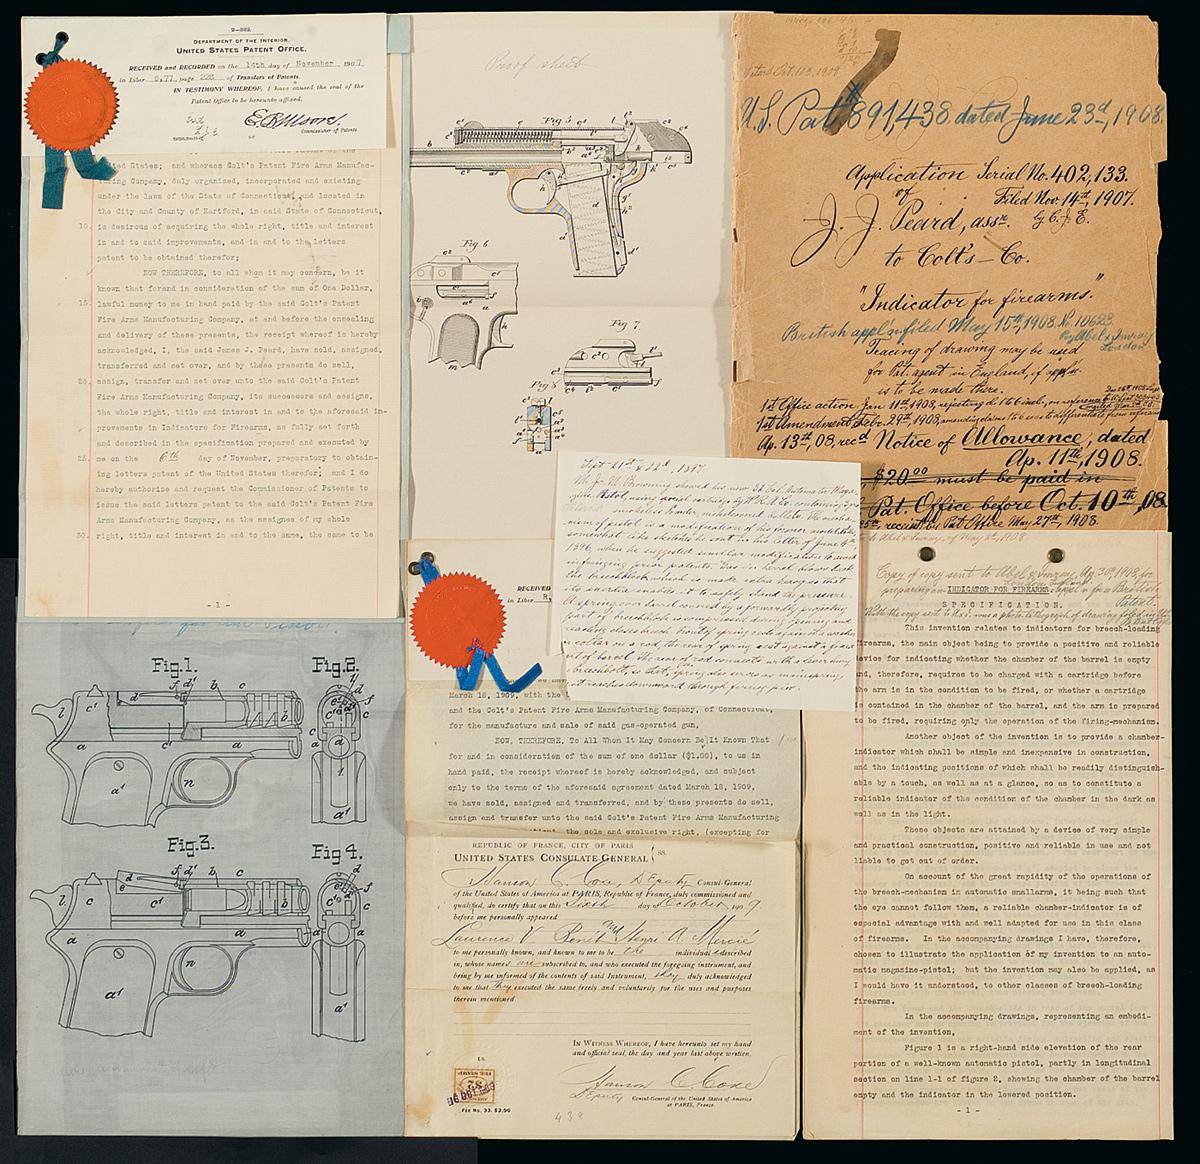 2—392.
DEPARTMENT OF THE INTERIOR.
UNITED STATES PATENT OFFICE.
RECEIVED and RECORDED on the 14th day of November, 1907,
in Liber O.77, page 228 of Transfers of Patents.
IN TESTIMONY WHEREOF, I have caused the seal of the
Patent Office to be hereunto affixed.
E.B.Moore.
Commissioner of Patents
United States; and whereas Colt's Patent Fire Arms Manufac-
turing Company, duly organised, incorporated and existing
under the laws of the State of Connecticut and located in
the City and County of Hartford, in said State of Connecticut,
10. is desirous of acquiring the whole right, title and interest
in and to said improvements, and in and to the letters
patent to be obtained therefor;
NOW THEREFORE, to all whom it may concern, be it
known that for and in consideration of the sum of One Dollar,
15. lawful money to me in hand paid by the said Colt's Patent
Fire Arms Manufacturing Company, at and before the ensealing
and delivery of these presents, the receipt whereof is hereby
acknowledged, I, the said James J. Peard, have sold, assigned,
transferred and set over, and by these presents do sell,
20. assign, transfer and set over unto the said Colt's Patent
Fire Arms Manufacturing Company, its successors and assigns,
the whole right, title and interest in and to the aforesaid im-
provements in Indicators for Firearms, as fully set forth
and described in the specification prepared and executed by
25. me on the 6th day of November, preparatory to obtain-
ing letters patent of the United States therefor; and I do
hereby authorize and request the Commissioner of Patents to
issue the said letters patent to the said Colt's Patent Fire
Arms Manufacturing Company, as the assignee of my whole
30. right, title and interest in and to the same, the same to be
- 1 -
Proof sheet
Fig 5
Fig 6
Fig 7.
Fig 8
U.S. Pat. 891,438 dated June 23d, 1908.
Application Serial No. 402,133.
of Filed Nov. 14th, 1907.
J. J. Peard, assr. by C. J. E.
to Colt's Co.
"Indicator for firearms."
British appl'n filed May 15th, 1908. No. 10623
By Abel & Imray
London
Tracing of drawing may be used
for Pat. agent in England, if appl'n.
is to be made there.
1st Office action Jan 11th, 1908, rejecting cl. 1 to 6 incl., on reference
1st Amendment Febr. 29th, 1908, amending claims
Ap. 13th, 08, recd Notice of Allowance, dated
Ap. 11th, 1908.
$20.00 must be paid in
Pat. Office before Oct. 10th, 08.
receipt by Pat. Office May 27th, 1908.
Sept 21st & 22d, 1897.
Mr. J. M. Browning showed his new 32 Cal. Automatic Maga-
zine Pistol, using special cartridge by W.R.A. Co. containing
smokeless Powder, nickel coated bullet. The mechan-
ism of pistol is a modification of his former model &
somewhat like sketches he sent in his letter of June
1896, when he suggested similar modification to avoid
infringing prior patents. This in barrel blows back
the breechblock which is made extra heavy so that
its inertia enables it to safely stand the pressure.
A spring over barrel covered by a forwardly projecting
part of breechblock is compressed during opening and
reacting closes breech. Front of spring rests against a washer
or collar on a rod, the rear of spring rest against a fixed
part of barrel. The rear of rod connects with a lever hung
in breechbolt, so that spring also serves as mainspring
it reaches downward through firing pin.
RECEIVED
in Liber R.
March 18, 1909, with the
and the Colt's Patent Fire Arms Manufacturing Company, of Connecticut,
for the manufacture and sale of said gas-operated gun,
NOW, THEREFORE, To All Whom It May Concern Be It Known That
for and in consideration of the sum of one dollar ($1.00), to us in
hand paid, the receipt whereof is hereby acknowledged, and subject
only to the terms of the aforesaid agreement dated March 18, 1909,
we have sold, assigned and transferred, and by these presents do sell,
assign and transfer unto the said Colt's Patent Fire Arms Manufacturing
the sole and exclusive right, (excepting for
REPUBLIC OF FRANCE, CITY OF PARIS
UNITED STATES CONSULATE-GENERAL } SS.
I, Hanson C. Coxe, Deputy Consul-General
of the United States of America at PARIS, Republic of France, duly commissioned and
qualified, do certify that on this Sixth day of October, 1909
before me personally appeared
Laurence V. Benét and Henri A. Mercié
to me personally known, and known to me to be the individuals described
in, whose names are subscribed to, and who executed the foregoing instrument, and
being by me informed of the contents of said Instrument, they duly acknowledged
to me that they executed the same freely and voluntarily for the uses and purposes
therein mentioned.
IN WITNESS WHEREOF, I have hereunto set my hand
and official seal, the day and year last above written.
Hanson C. Coxe
Deputy Consul-General of the United States of America
at PARIS, France.
Fee No. 33. $2.00
438
Fig.1.
Fig.2.
Fig.3.
Fig.4.
Copy of copy sent to Abel & Imray, Ap. 30th, 1908 for
preparing an INDICATOR FOR FIREARMS appl'n for a British
Patent.
SPECIFICATION.
This invention relates to indicators for breech-loading
firearms, the main object being to provide a positive and reliable
device for indicating whether the chamber of the barrel is empty
and, therefore, requires to be charged with a cartridge before
the arm is in the condition to be fired, or whether a cartridge
is contained in the chamber of the barrel, and the arm is prepared
to be fired, requiring only the operation of the firing-mechanism.
Another object of the invention is to provide a chamber-
indicator which shall be simple and inexpensive in construction,
and the indicating positions of which shall be readily distinguish-
able by a touch, as well as at a glance, so as to constitute a
reliable indicator of the condition of the chamber in the dark as
well as in the light.
These objects are attained by a device of very simple
and practical construction, positive and reliable in use and not
liable to get out of order.
On account of the great rapidity of the operations of
the breech-mechanism in automatic smallarms, it being such that
the eye cannot follow them, a reliable chamber-indicator is of
especial advantage with and well adapted for use in this class
of firearms. In the accompanying drawings I have, therefore,
chosen to illustrate the application of my invention to an auto-
matic magazine-pistol; but the invention may also be applied, as
I would have it understood, to other classes of breech-loading
firearms.
In the accompanying drawings, representing an embodi-
ment of the invention,
Figure 1 is a right-hand side elevation of the rear
portion of a well-known automatic pistol, partly in longitudinal
section on line 1-1 of figure 2, showing the chamber of the barrel
empty and the indicator in the lowered position.
- 1 -